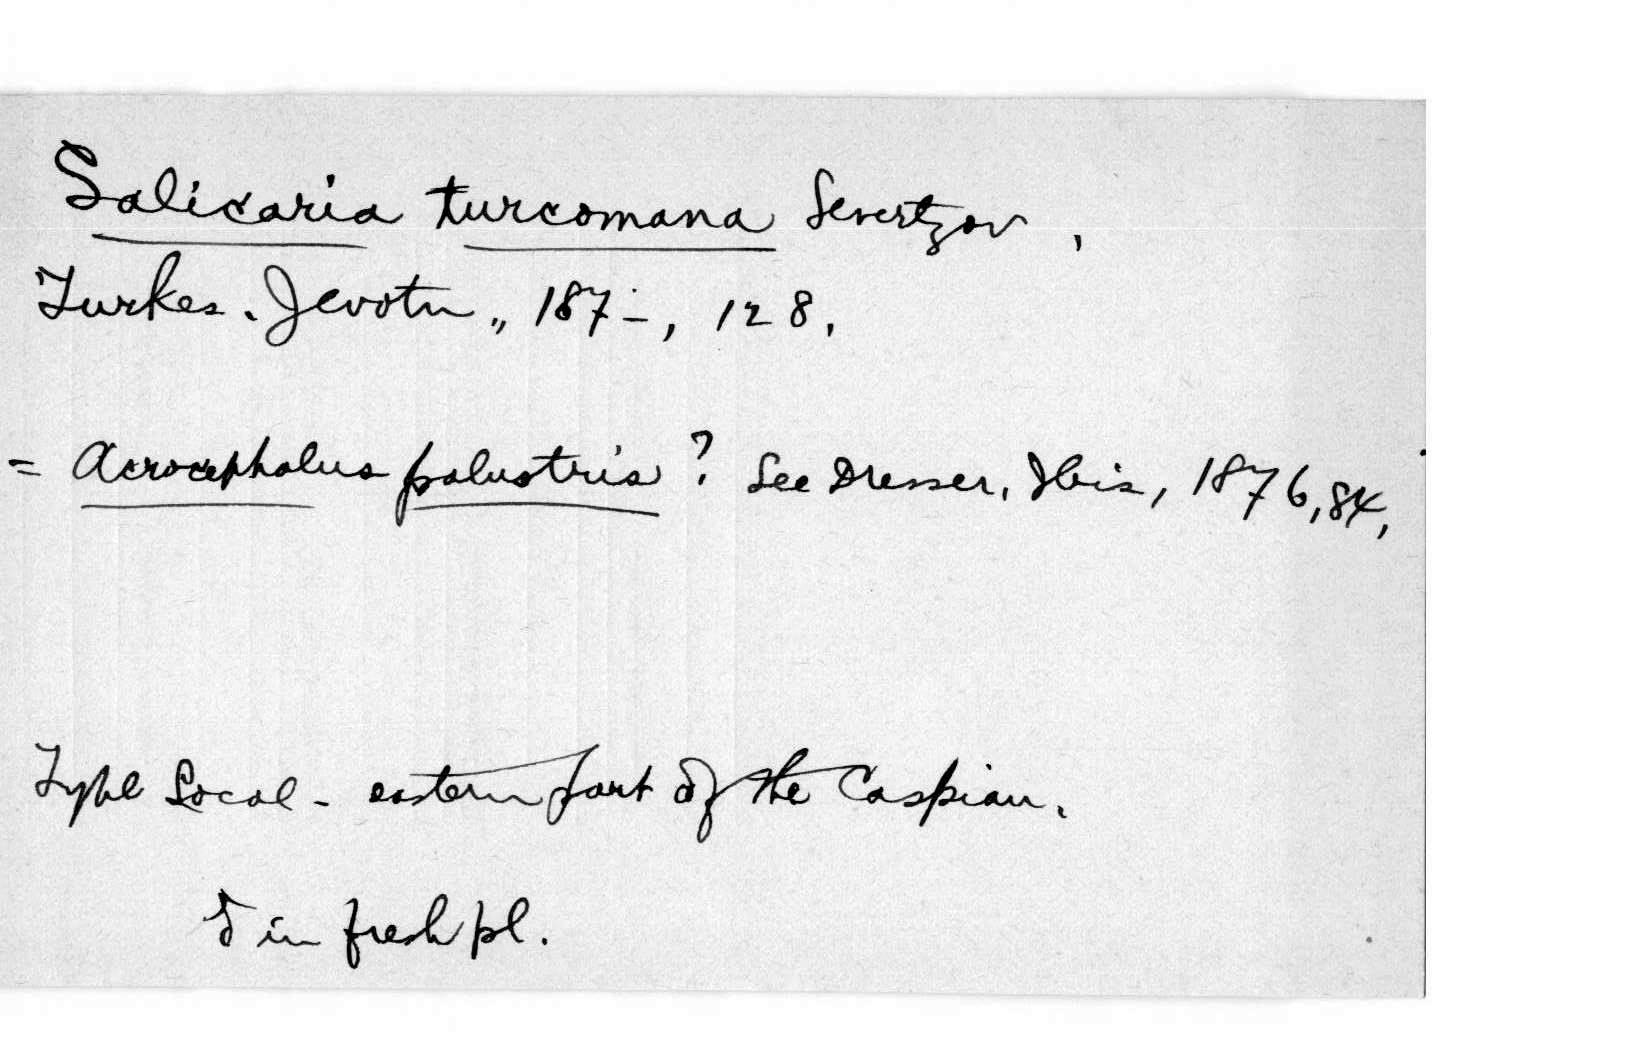 Salicaria turcomana Severtzov,
Turkes. Jevotn., 187-, 128.
= Acrocephalus palustris? See Dresser, Ibis, 1876, 84.
Type Local - eastern part of the Caspian.
♂ in fresh pl.